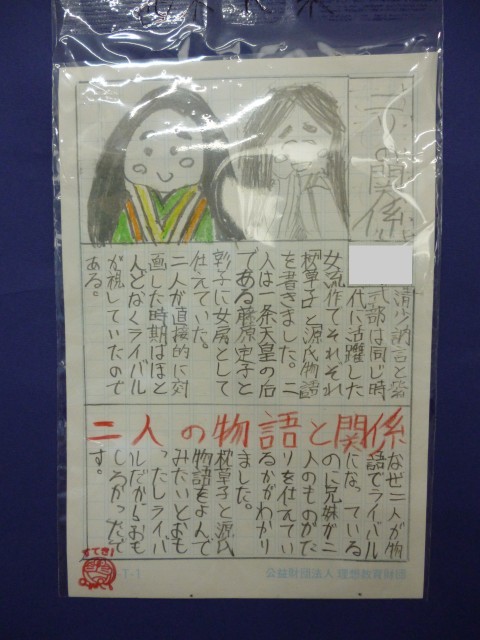 二人の関係
清少納言と紫
式部は同じ時
代に活躍した
女流作てそれぞれ
枕草子と源氏物語
を書きました。二
人は一条天皇の后
である藤原定子と
彰子に女房として
仕えていた。
二人が直接的に対
画した時期はほと
んどなくライバル
が視していたので
ある。
二人の物語と関係
なぜ二人が物
語でライバル
になっている
のに兄妹が二
人のものがた
りを仕えてい
るかがわかり
ました。
枕草子と源氏
物語をよんで
みたいとおも
ったしライバ
ルだからおも
しろかったで
す。
すてき!
-1-1
公益財団法人 理想教育財団